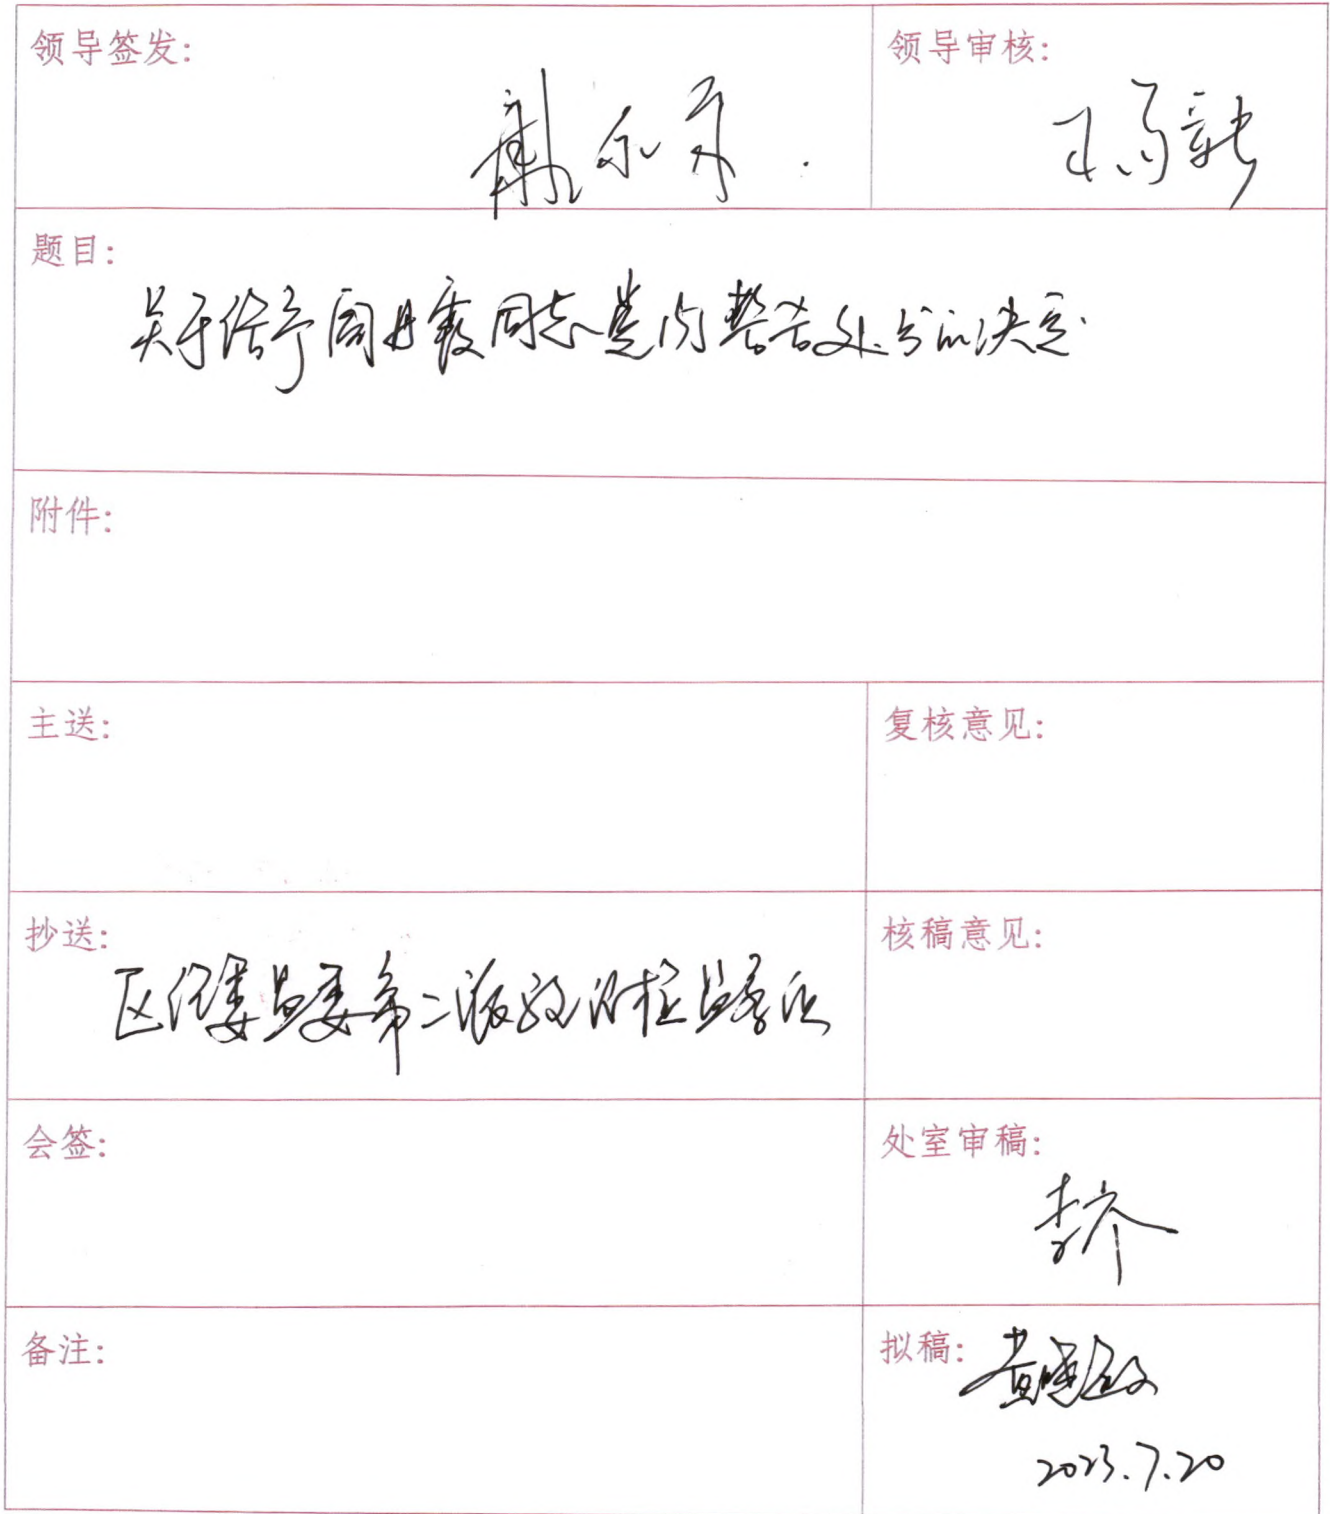 领导签发:
领导审核:
题目:
关于给予同志党内警告处分的决定
附件:
主送:
复核意见:
抄送:
区纪委监委第二派驻纪检监察组
核稿意见:
会签:
处室审稿:
李
备注:
拟稿: 黄
2023.7.20